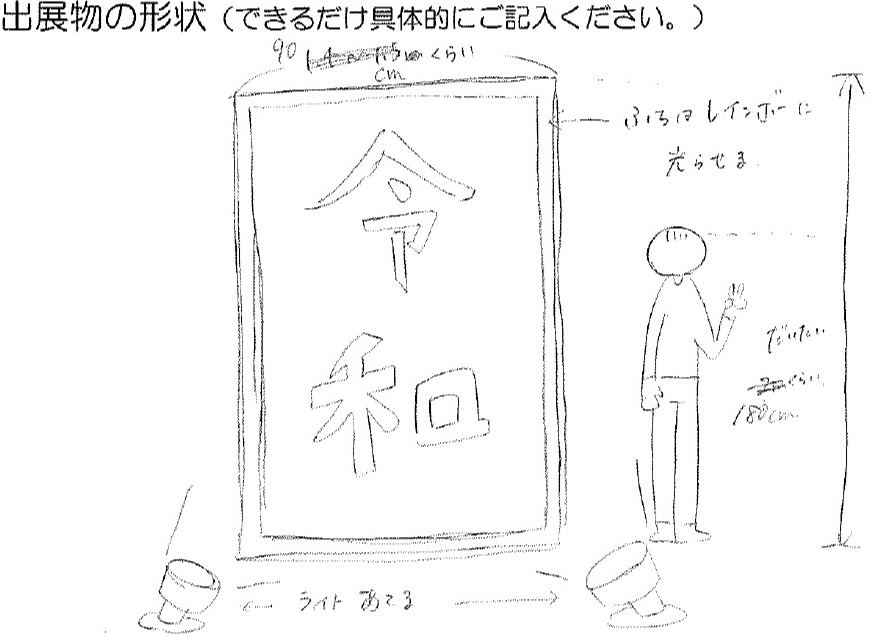 出展物の形状（できるだけ具体的にご記入ください。）
90 くらい
cm
ふちはレインボーに
光らせる.
令
和
だいたい
くらい
180cm
ライト あてる